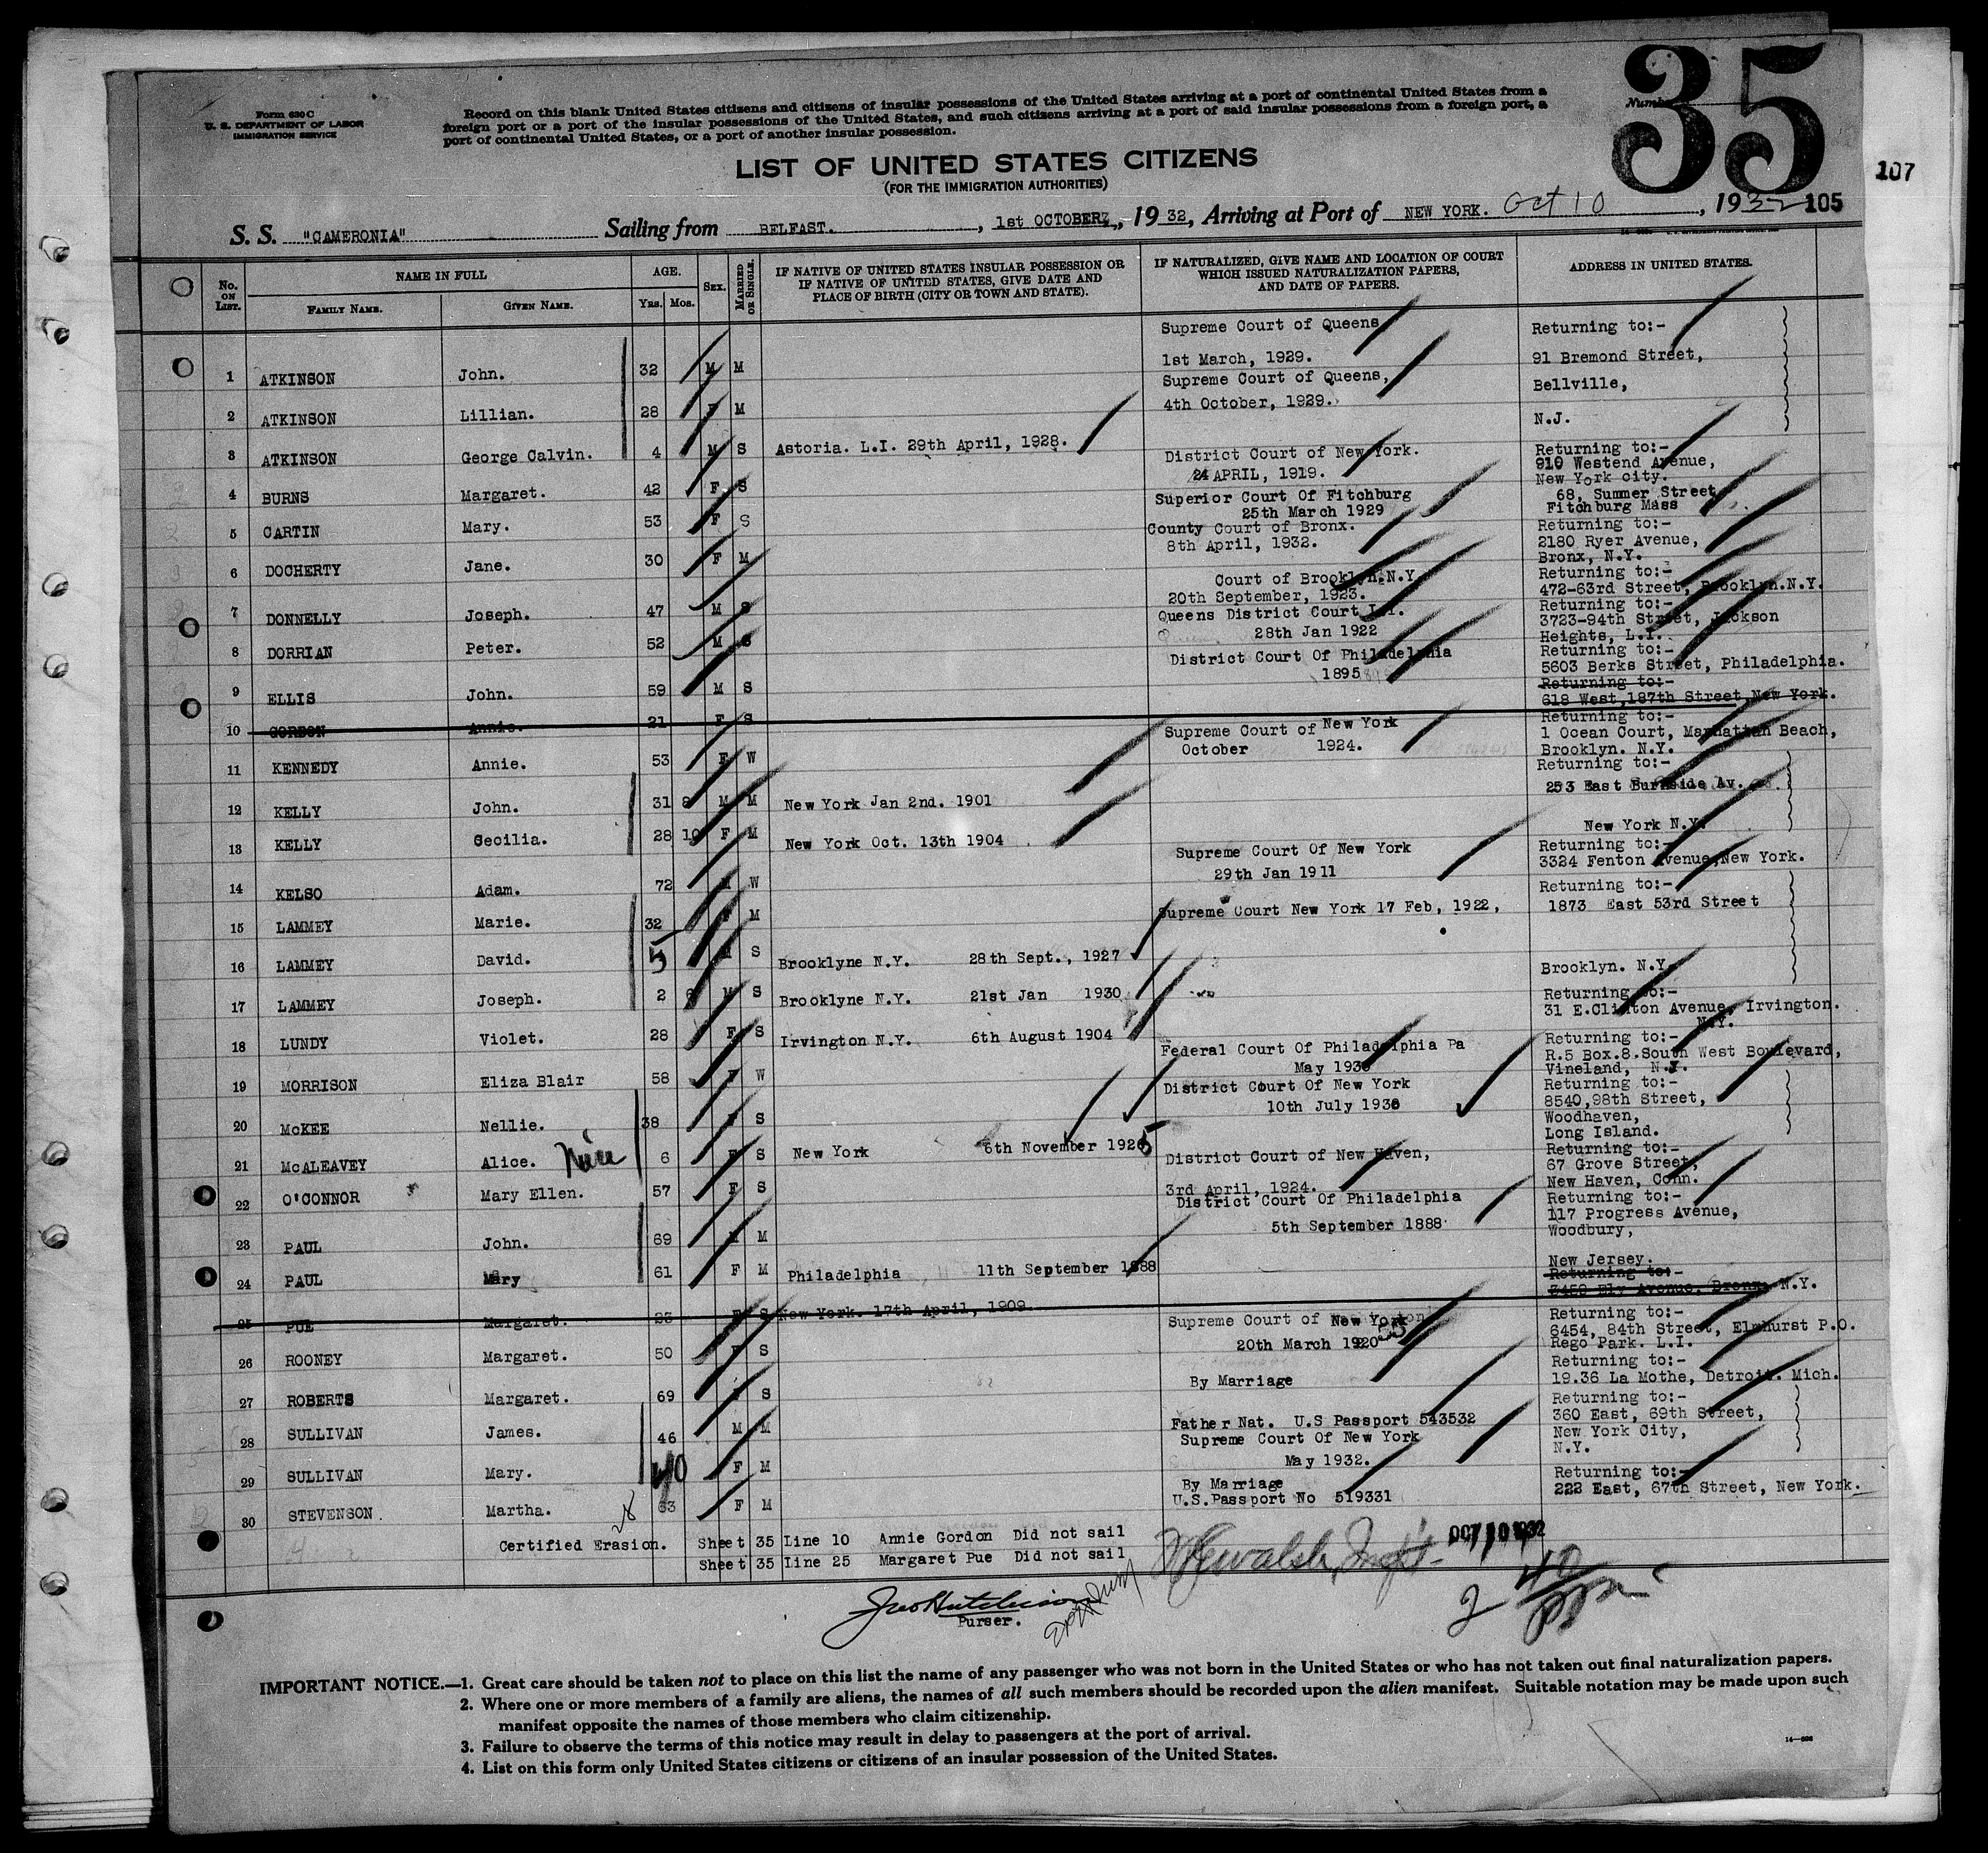 35
107
Form 630 C
U. S. DEPARTMENT OF LABOR
IMMIGRATION SERVICE
Record on this blank United States citizens and citizens of insular possessions of the United States arriving at a port of continental United States from a
foreign port or a port of the insular possessions of the United States, and such citizens arriving at a port of said insular possessions from a foreign port, a
port of continental United States, or a port of another insular possession.
LIST OF UNITED STATES CITIZENS
(FOR THE IMMIGRATION AUTHORITIES)
S. S. "CAMERONIA" Sailing from BELFAST. , 1st OCTOBER, , 19 32, Arriving at Port of NEW YORK. Oct 10 , 1932 105
No. ON LIST. NAME IN FULL AGE. SEX. MARRIED OR SINGLE. IF NATIVE OF UNITED STATES INSULAR POSSESSION OR IF NATIVE OF UNITED STATES, GIVE DATE AND PLACE OF BIRTH (CITY OR TOWN AND STATE). IF NATURALIZED, GIVE NAME AND LOCATION OF COURT WHICH ISSUED NATURALIZATION PAPERS, AND DATE OF PAPERS. ADDRESS IN UNITED STATES.
FAMILY NAME. GIVEN NAME. YRS. MOS.
1 ATKINSON John. 32 M M Supreme Court of Queens 1st March, 1929. Returning to:- 91 Bremond Street,
2 ATKINSON Lillian. 28 F M Supreme Court of Queens, 4th October, 1929. Bellville,
3 ATKINSON George Calvin. 4 M S Astoria. L.I. 29th April, 1928. N.J.
4 BURNS Margaret. 42 F S District Court of New York. 24 APRIL, 1919. Returning to:- 910 Westend Avenue, New York city.
5 CARTIN Mary. 53 F S Superior Court Of Fitchburg 25th March 1929 68, Summer Street Fitchburg Mass
6 DOCHERTY Jane. 30 F M County Court of Bronx. 8th April, 1932. Returning to:- 2180 Ryer Avenue, Bronx, N.Y.
7 DONNELLY Joseph. 47 M S Court of Brooklyn.N.Y. 20th September, 1923. Returning to:- 472-63rd Street, Brooklyn.N.Y.
8 DORRIAN Peter. 52 M S Queens District Court L.I. 28th Jan 1922 Returning to:- 3723-94th Street, Jackson Heights, L.I.
9 ELLIS John. 59 M S District Court Of Philadelphia 1895 Returning to:- 5603 Berks Street, Philadelphia.
10 GORDON Annie. 21 F S Returning to:- 618 West,187th Street,New York.
11 KENNEDY Annie. 53 F W Supreme Court of New York October 1924. Returning to:- 1 Ocean Court, Manhattan Beach, Brooklyn. N.Y.
12 KELLY John. 31 8 M M New York Jan 2nd. 1901 Returning to:- 253 East Burnside Av.
13 KELLY Cecilia. 28 10 F M New York Oct. 13th 1904 New York N.Y.
14 KELSO Adam. 72 M W Supreme Court Of New York 29th Jan 1911 Returning to:- 3324 Fenton Avenue,New York.
15 LAMMEY Marie. 32 F M Supreme Court New York 17 Feb, 1922, Returning to:- 1873 East 53rd Street
16 LAMMEY David. 5 M S Brooklyne N.Y. 28th Sept., 1927
17 LAMMEY Joseph. 2 6 M S Brooklyne N.Y. 21st Jan 1930 Brooklyn. N.Y.
18 LUNDY Violet. 28 F S Irvington N.Y. 6th August 1904 Returning to:- 31 E.Clinton Avenue, Irvington. N.Y.
19 MORRISON Eliza Blair 58 F W Federal Court Of Philadelphia Pa May 1930 Returning to:- R.5 Box.8.South West Boulevard, Vineland, N.J.
20 McKEE Nellie. 38 F S District Court Of New York 10th July 1930 Returning to:- 8540,98th Street,
21 McALEAVEY Alice. Niece 6 F S New York 6th November 1925 Woodhaven, Long Island.
22 O'CONNOR Mary Ellen. 57 F S District Court of New Haven, 3rd April, 1924. Returning to:- 67 Grove Street, New Haven, Conn.
23 PAUL John. 69 M M District Court Of Philadelphia 5th September 1888 Returning to:- 117 Progress Avenue, Woodbury,
24 PAUL Mary 61 F M Philadelphia 11th September 1888 New Jersey.
25 PUE Margaret. 23 F S New York. 17th April, 1909. Returning to:- Avenue. Bronx. N.Y.
26 ROONEY Margaret. 50 F S Supreme Court of New York 20th March 1920 Returning to:- 6454, 84th Street, Elmhurst P.O. Rego Park. L.I.
27 ROBERTS Margaret. 69 F S By Marriage Returning to:- 19.36 La Mothe, Detroit. Mich.
28 SULLIVAN James. 46 M M Father Nat. U.S Passport 543532 Returning to:- 360 East, 69th Street,
29 SULLIVAN Mary. 40 F M Supreme Court Of New York May 1932. New York City, N.Y.
30 STEVENSON Martha. 63 F M By Marriage U.S.Passport No 519331 Returning to:- 222 East, 67th Street, New York.
28
Certified Erasion. Sheet 35 Line 10 Annie Gordon Did not sail
Sheet 35 Line 25 Margaret Pue Did not sail
OCT 10 1932
2 40
Jno Hutchison
Purser.
IMPORTANT NOTICE.—1. Great care should be taken not to place on this list the name of any passenger who was not born in the United States or who has not taken out final naturalization papers.
2. Where one or more members of a family are aliens, the names of all such members should be recorded upon the alien manifest. Suitable notation may be made upon such
manifest opposite the names of those members who claim citizenship.
3. Failure to observe the terms of this notice may result in delay to passengers at the port of arrival.
4. List on this form only United States citizens or citizens of an insular possession of the United States.